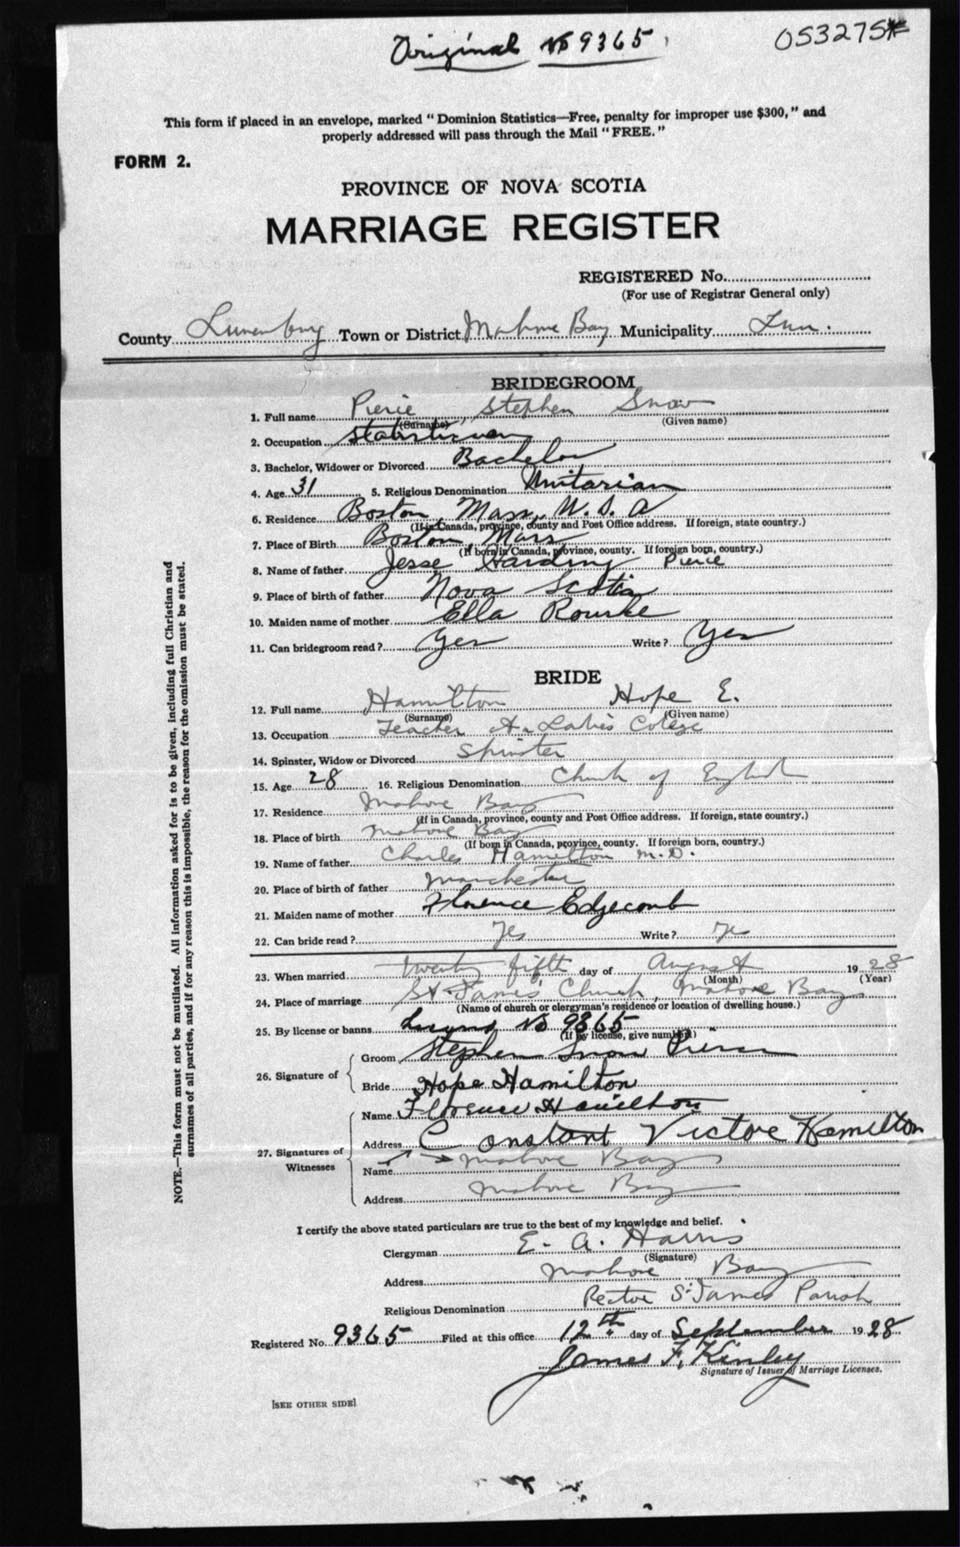 Original No 9365
053275*
This form if placed in an envelope, marked "Dominion Statistics—Free, penalty for improper use $300," and
properly addressed will pass through the Mail "FREE."
FORM 2.
PROVINCE OF NOVA SCOTIA
MARRIAGE REGISTER
REGISTERED No.
(For use of Registrar General only)
County Lunenburg Town or District Mahone Bay Municipality Lun.
BRIDEGROOM
1. Full name Pierce, Stephen Snow
(Surname) (Given name)
2. Occupation Statistician
3. Bachelor, Widower or Divorced Bachelor
4. Age 31 5. Religious Denomination Unitarian
6. Residence Boston, Mass, U. S. A
(If in Canada, province, county and Post Office address. If foreign, state country.)
7. Place of Birth Boston, Mass
(If born in Canada, province, county. If foreign born, country.)
8. Name of father Jesse Harding Pierce
9. Place of birth of father Nova Scotia
10. Maiden name of mother Ella Rourke
11. Can bridegroom read? Yes Write? Yes
BRIDE
12. Full name Hamilton Hope E.
(Surname) (Given name)
13. Occupation Teacher Ladies College
14. Spinster, Widow or Divorced Spinster
15. Age 28 16. Religious Denomination Church of England
17. Residence Mahone Bay
(If in Canada, province, county and Post Office address. If foreign, state country.)
18. Place of birth Mahone Bay
(If born in Canada, province, county. If foreign born, country.)
19. Name of father Charles Hamilton M.D.
20. Place of birth of father Manchester
21. Maiden name of mother Florence Edgecomb
22. Can bride read? Yes Write? Yes
23. When married twenty fifth day of August 1928
(Month) (Year)
24. Place of marriage St James Church, Mahone Bay
(Name of church or clergyman's residence or location of dwelling house.)
25. By license or banns No 9365
(If by license, give number.)
26. Signature of
Groom Stephen Snow Pierce
Bride Hope Hamilton
27. Signatures of Witnesses
Name Florence Hamilton
Address Constant Victore Hamilton
Name Mahone Bay
Address Mahone Bay
NOTE.—This form must not be mutilated. All information asked for is to be given, including full Christian and
surnames of all parties, and if for any reason this is impossible, the reason for the omission must be stated.
I certify the above stated particulars are true to the best of my knowledge and belief.
Clergyman E. A. Harris
(Signature)
Address Mahone Bay
Religious Denomination Rector St James Parish
Registered No. 9365 Filed at this office 12th day of September 1928
James F. Kinley
Signature of Issuer of Marriage Licenses.
[SEE OTHER SIDE]